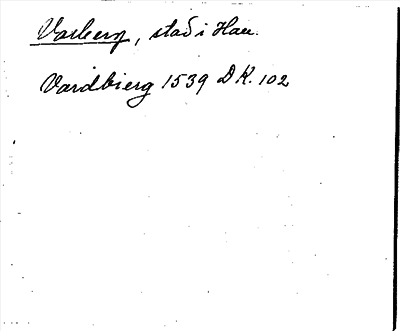 Varberg, stad i Hall.
Vardbierg 1539 DK. 102